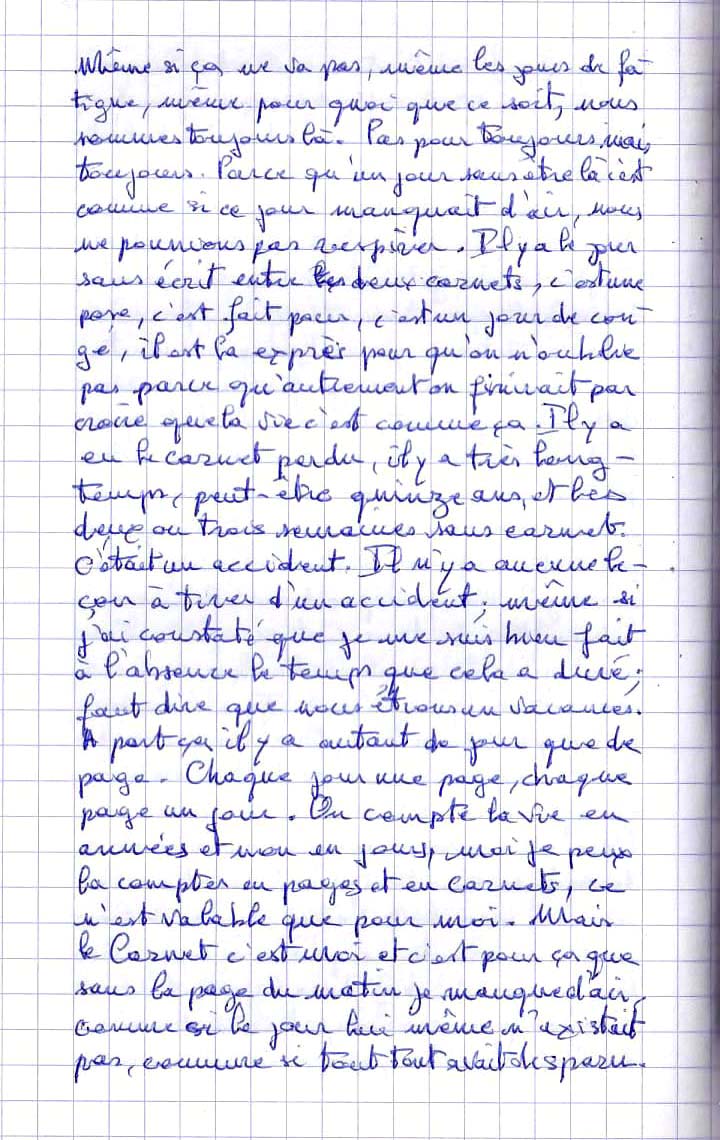 Même si ça ne va pas, même les jours de fa-
tigue, même pour quoi que ce soit, nous
sommes toujours là. Pas pour toujours, mais
toujours. Parce qu'un jour sans être là c'est
comme si ce jour manquait d'air, nous
ne pourrions pas respirer. Il y a le jour
sans écrit entre les deux carnets, c'est une
pose, c'est fait pour, c'est un jour de con-
gé, il est là exprès pour qu'on n'oublie
pas parce qu'autrement on finirait par
croire que la vie c'est comme ça. Il y a
eu le carnet perdu, il y a très long-
temps, peut-être quinze ans, et les
deux ou trois semaines sans carnet.
C'était un accident. Il n'y a aucune le-
çon à tirer d'un accident, même si
j'ai constaté que je me suis bien fait
à l'absence le temps que cela a duré;
faut dire que nous étions en vacances.
A part ça il y a autant de jour que de
page. Chaque jour une page, chaque
page un jour. On compte la vie en
années et non en jours, moi je peux
la compter en pages et en carnets, ce
n'est valable que pour moi. Mais
le Carnet c'est moi et c'est pour ça que
sans la page du matin je manque d'air
comme si le jour lui même n'existait
pas, comme si tout tout avait disparu.